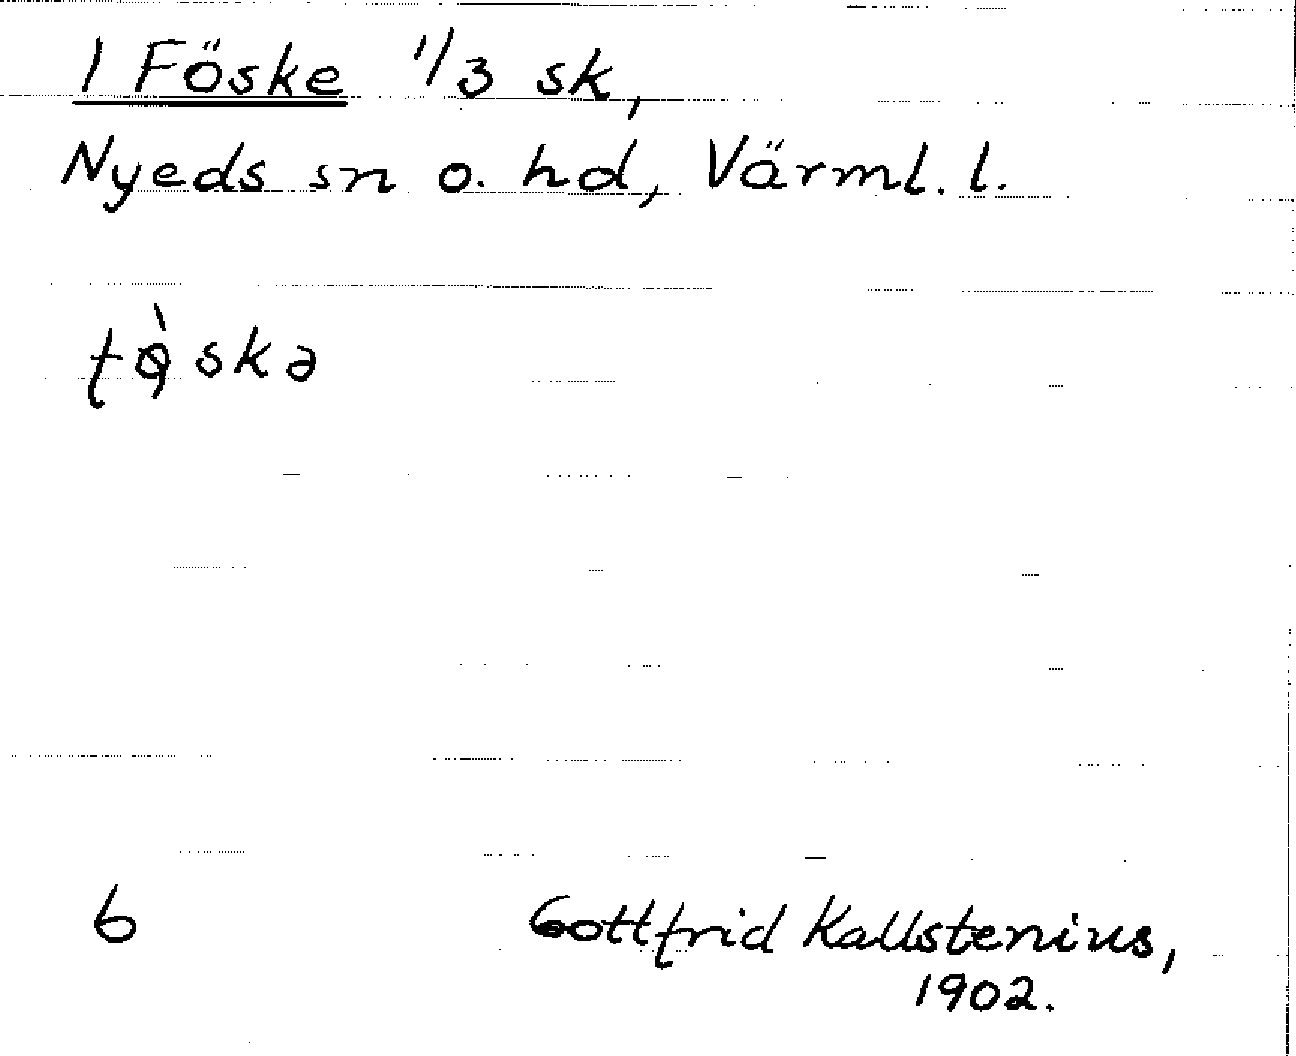 1 Föske 1/3 sk,
Nyeds sn o. hd, Värml. l.
fø̀skə
6
Gottfrid Kallstenius,
1902.